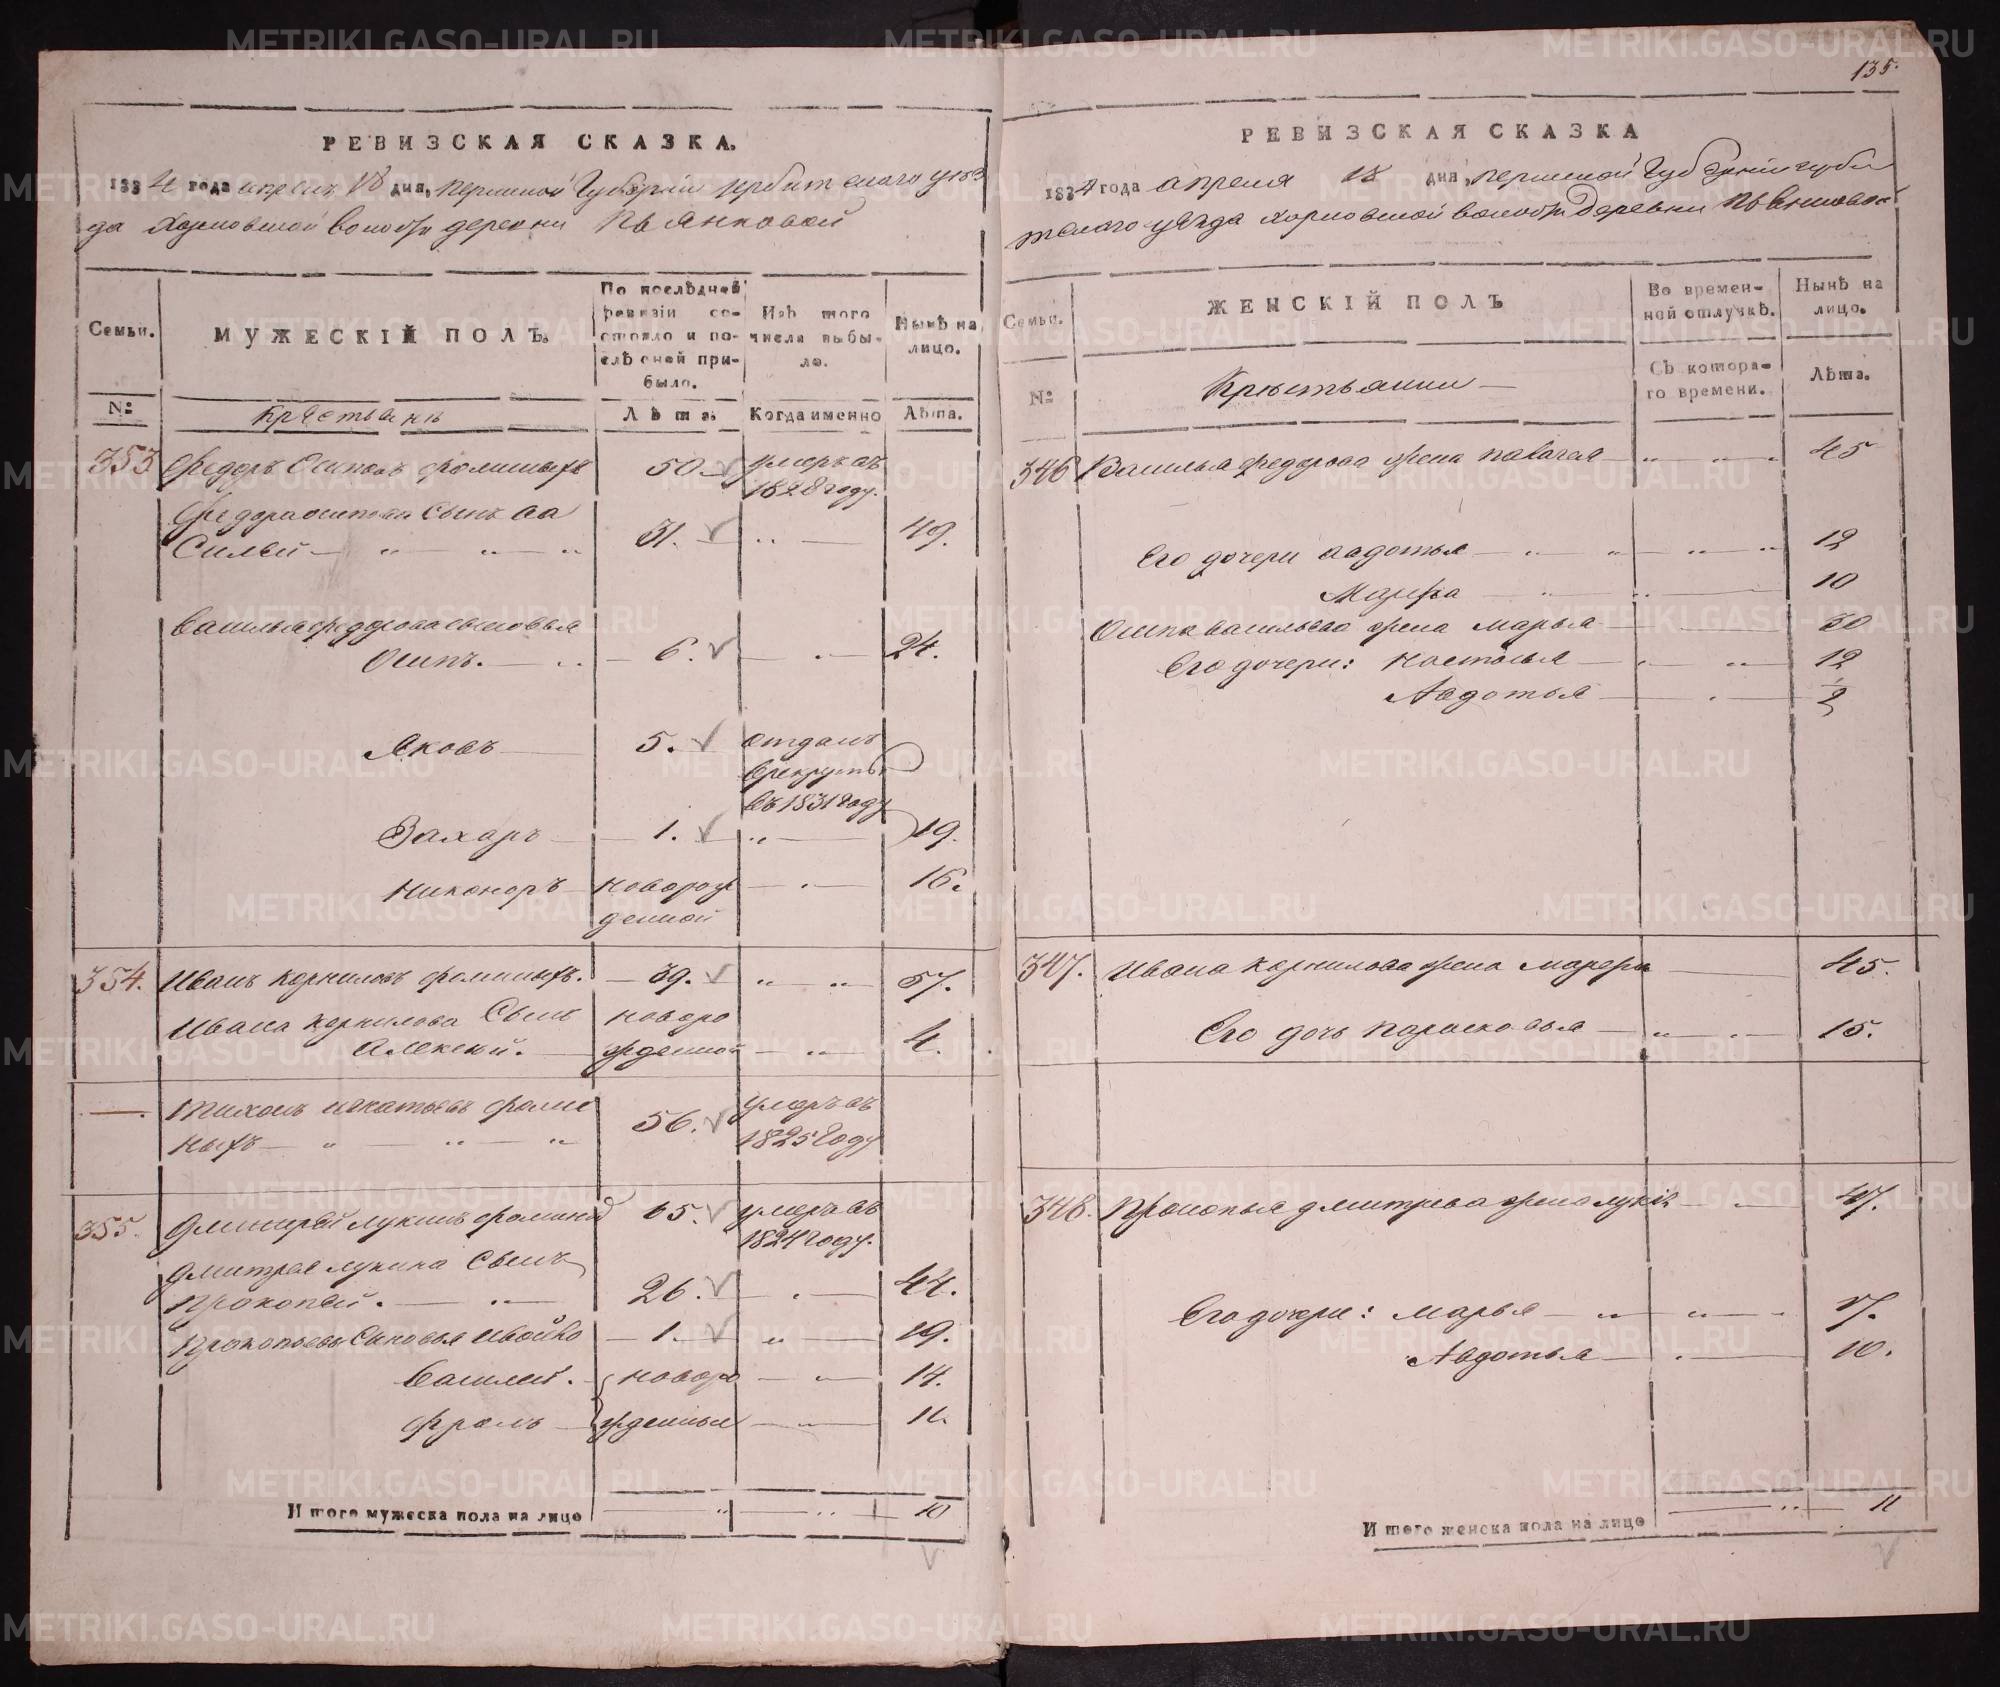 135.
РЕВИЗСКАЯ СКАЗКА.
1834 года апреля 18 дня, пермской Губернии ирбитского уез
да Харловской волости деревни Пьянковой
Семьи.
МУЖЕСКІЙ ПОЛЪ.
По послѣдней ревизіи состояло и послѣ оной прибыло.
Изъ того числа выбыло.
Нынѣ на лицо.
№
Крестьяне
Лѣта.
Когда именно
Лѣта.
353 Федоръ Осиповъ фоминыхъ 50 умеръ въ
1828 году.
Федора осипова Сынъ Ва
Силей 31. 49.
Василья федорова сыновья
Осипъ. 6. 24.
Яковъ 5. отданъ
в рекруты
въ 1831 году
Захаръ 1. 19.
Никоноръ новорож 16.
денной
354. Иванъ Корниловъ фоминыхъ. 39. 57.
Ивана Корнилова Сынъ новоро
Алексей. жденной 4.
Тихонъ игнатьевъ фоми
ныхъ 56. умеръ въ
1825 году
355. Дмитрей лукинъ фоминых 65. умеръ въ
1824 году.
Дмитрея лукина Сынъ
Прокопей. 26. 44.
Прокопьевы Сыновья 1. 19.
Василей. новоро 14.
фролъ жденныя 11.
И того мужеска пола на лицо 10
РЕВИЗСКАЯ СКАЗКА
1834 года апреля 18 дня, пермской Губернии ирби
тского уѣзда харловской волости деревни Пьянковой
Семьи.
ЖЕНСКІЙ ПОЛЪ
Во временной отлучкѣ.
Нынѣ на лицо.
№
Крестьянки
Съ котораго времени.
Лѣта.
346 Василья федорова жена 45
Его дочери авдотья 12
Марфа 10
Осипа васильева жена марья 30
Его дочери: настасья 12
Авдотья 2
347. Ивана Корнилова жена марфа 45.
Его дочь парасковья 15.
348. Прокопья дмитрева жена 47.
Его дочери: марья 17.
Авдотья 10.
И того женска пола на лицо 11
METRIKI.GASO-URAL.RU